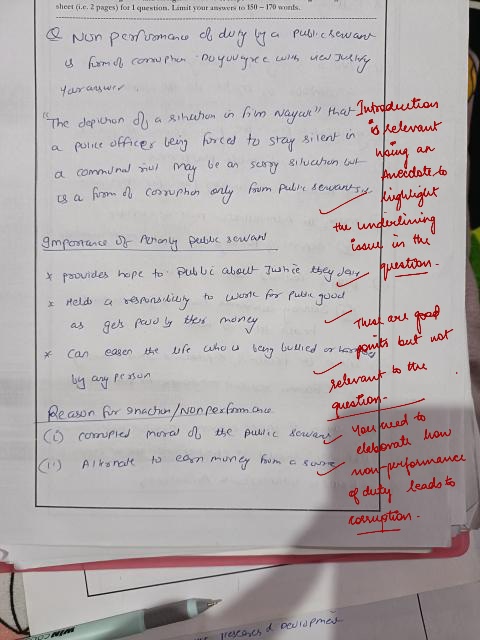 sheet (i.e. 2 pages) for 1 question. Limit your answers to 150 – 170 words.
Q Non performance of duty by a public servant
is form of corruption. Do you agree with view Justify
your answer.
"The depiction of a situation in film Nayak" that
a police officer being forced to stay silent in
a communal may be an sorry situation but
is a form of corruption only from public servants
Introduction
is relevant
using an
Anecdote to
highlight
the underlining
issue in the
question.
Importance of public servant
* provides hope to public about Justice they
* Holds a responsibility to work for public good
as gets paid by their money
* Can easen the life who is being bullied or
by any person
These are good
points but not
relevant to the
question.
Reason for inaction/Nonperformance
(i) corrupted moral of the public servant
(ii) Alternate to earn money from a
You need to
elaborate how
non-performance
of duty leads to
corruption.
& Development